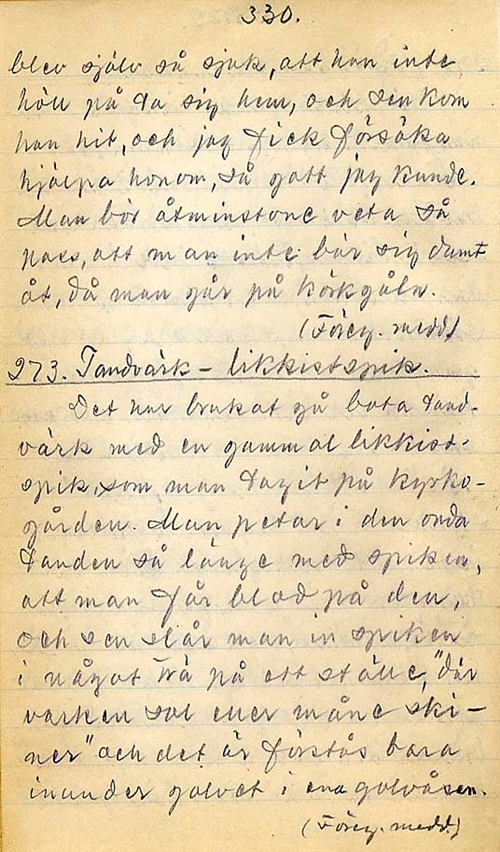 330.
blev själv så sjuk, att han inte
höll på ta sig hem, och sen kom
han hit, och jag fick försöka
hjälpa honom, så gott jag kunde.
Man bör åtminstone veta så
pass, att man inte bär sig dumt
åt, då man går på körkgåln.
(Föreg. medd.)
273. Tandvärk – likkistspik.
Det har brukat gå bota tand-
värk med en gammal likkist-
spik, som man tagit på kyrko-
gården. Man petar i den onda
tanden så länge med spiken,
att man får blod på den,
och sen slår man in spiken
i något trä på ett ställe, "där
varken sol eller måne ski-
ner" och det är förstås bara
inunder golvet i ena golvåsen.
(Föreg. medd.)